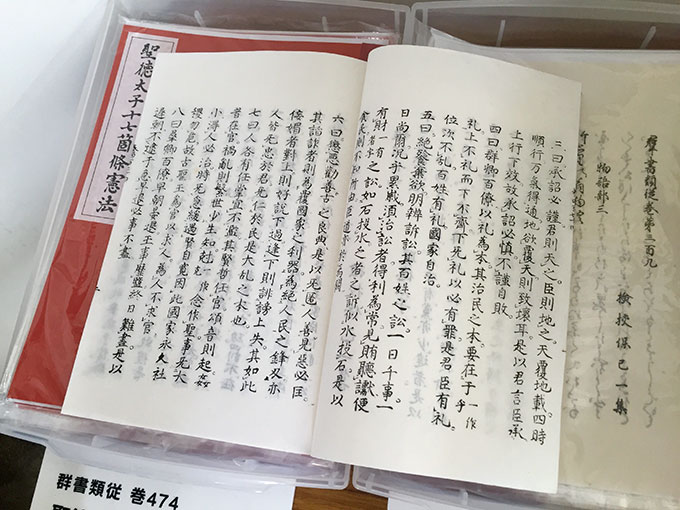 聖徳太子十七箇條憲法
三曰承詔必謹君則天之臣則地之天覆地載四時
順行万氣得通地欲覆天則致壊耳是以君言臣承
上行下效故承詔必慎不謹自敗
四曰群卿百僚以礼為本其治民之本要在于乎一作
礼上不礼而下不齊下无礼以必有罪是君臣有礼
位次不乱百姓有礼國家自治
五曰絶餮棄欲明辨訴訟其百姓之訟一日千事一
日尚尓况乎累歳須治訟者得利為常見賄聽讞便
有財一有者字之訟如石投水乏者之訴似水投石是以
貧民則不知所由臣道亦於焉闕
六曰懲悪勸善古之良典是以无匿人善見悪必匡
其諂詐者則為覆國家之利器為絶人民之鋒刃亦
侫媚者對上則好說下過逢下則誹謗上失其如此
人皆无忠於君无仁於民是大乱之本也
七曰人各有任掌宜不濫其賢哲任官頌音則起姧
者在官禍乱則繁世少生知尅一作念作聖事无大
小得人必治時无急緩遇賢自寛因此國家永久社
禝勿危故古聖王為官以求人為人不求官
八曰羣卿百僚早朝晏退王事靡盬終日難盡是以
遅朝不逮于急早退必事不盡
羣書類従巻第三百九
檢挍保己一集
物語部三
群書類従 巻474